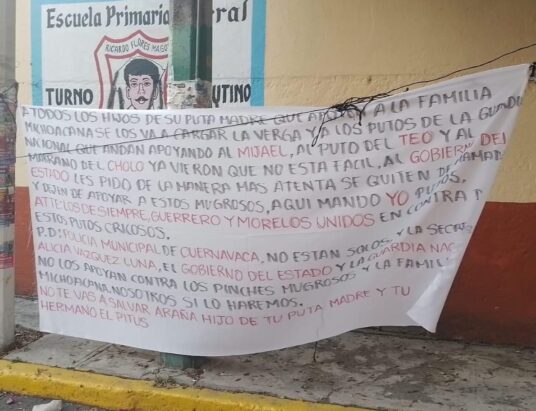 Escuela Primaria ral
RICARDO FLORES MAGO
TURNO UTINO
A TODOS LOS HIJOS DE SU PUTA MADRE QUE A LA FAMILIA
MICHOACANA SE LOS VA A CARGAR LA VERGA Y A LOS PUTOS DE LA GUARDIA
NACIONAL QUE ANDAN APOYANDO AL MIJAEL, AL PUTO DEL TEO Y AL
MARRANO DEL CHOLO YA VIERON QUE NO ESTA FACIL, AL GOBIERNO DEL
ESTADO LES PIDO DE LA MANERA MAS ATENTA SE QUITEN DE
Y DEJEN DE APOYAR A ESTOS MUGROSOS, AQUI MANDO YO PUTOS.
ATTE: LOS DE SIEMPRE, GUERRERO Y MORELOS UNIDOS EN CONTRA
ESTOS PUTOS CRICOSOS.
P.D: POLICIA MUNICIPAL DE CUERNAVACA, NO ESTAN SOLOS, Y LA SECRE
ALICIA VAZQUEZ LUNA, EL GOBIERNO DEL ESTADO Y LA GUARDIA NAC
NO LOS APOYAN CONTRA LOS PINCHES MUGROSOS Y LA FAMILI
MICHOACANA. NOSOTROS SI LO HAREMOS.
NO TE VAS A SALVAR ARAÑA HIJO DE TU PUTA MADRE Y TU
HERMANO EL PITUS